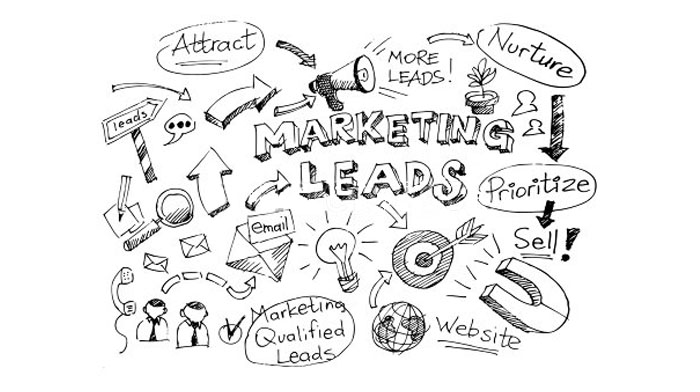 Attract
MORE
LEADS!
Nurture
leads
MARKETING
LEADS
Prioritize
email
Sell!
Marketing
Qualified
Leads
Website